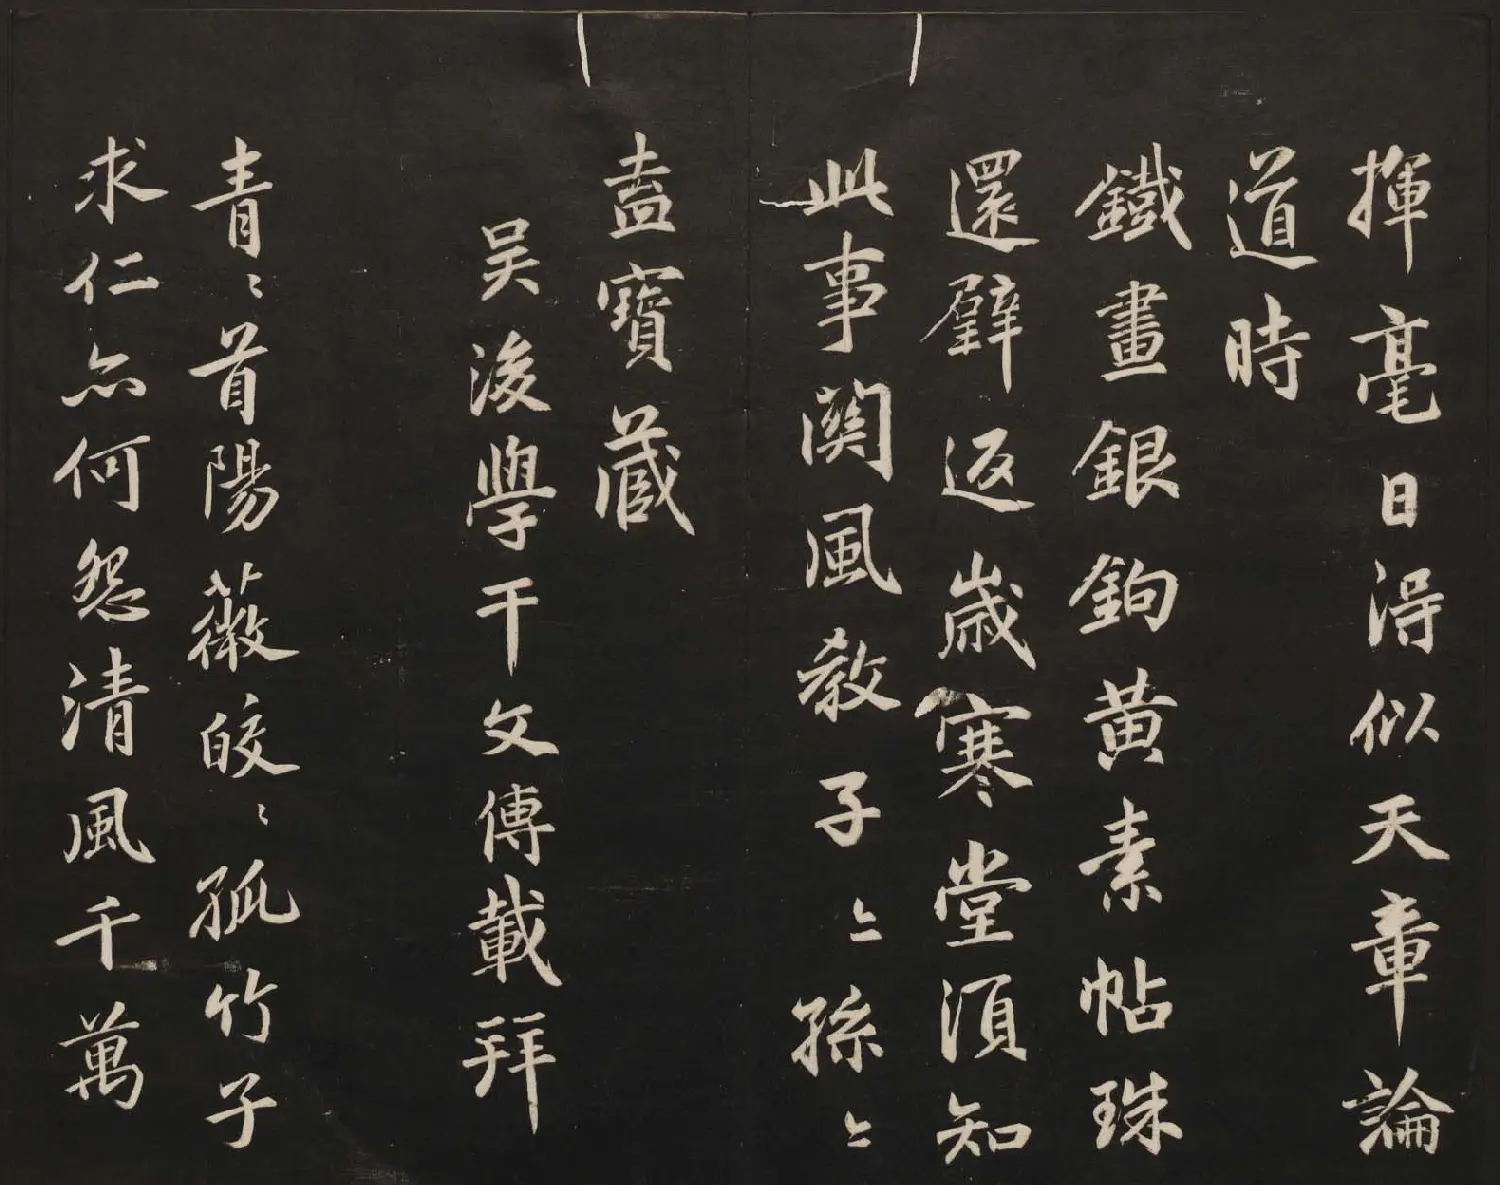 揮毫日得似天章論
道時
鐵畫銀鉤黃素帖珠
還璧返歲寒堂須知
此事關風教子〻孫〻
盍寶藏
吳後學干文傳載拜
青〻首陽薇皎〻孤竹子
求仁亦何怨清風千萬